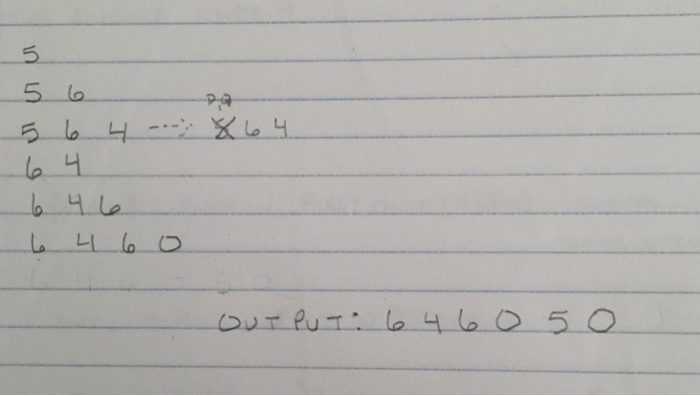 5
5 6
D.Q
5 6 4 ---> 5 6 4
6 4
6 4 6
6 4 6 0
OUTPUT: 6 4 6 0 5 0